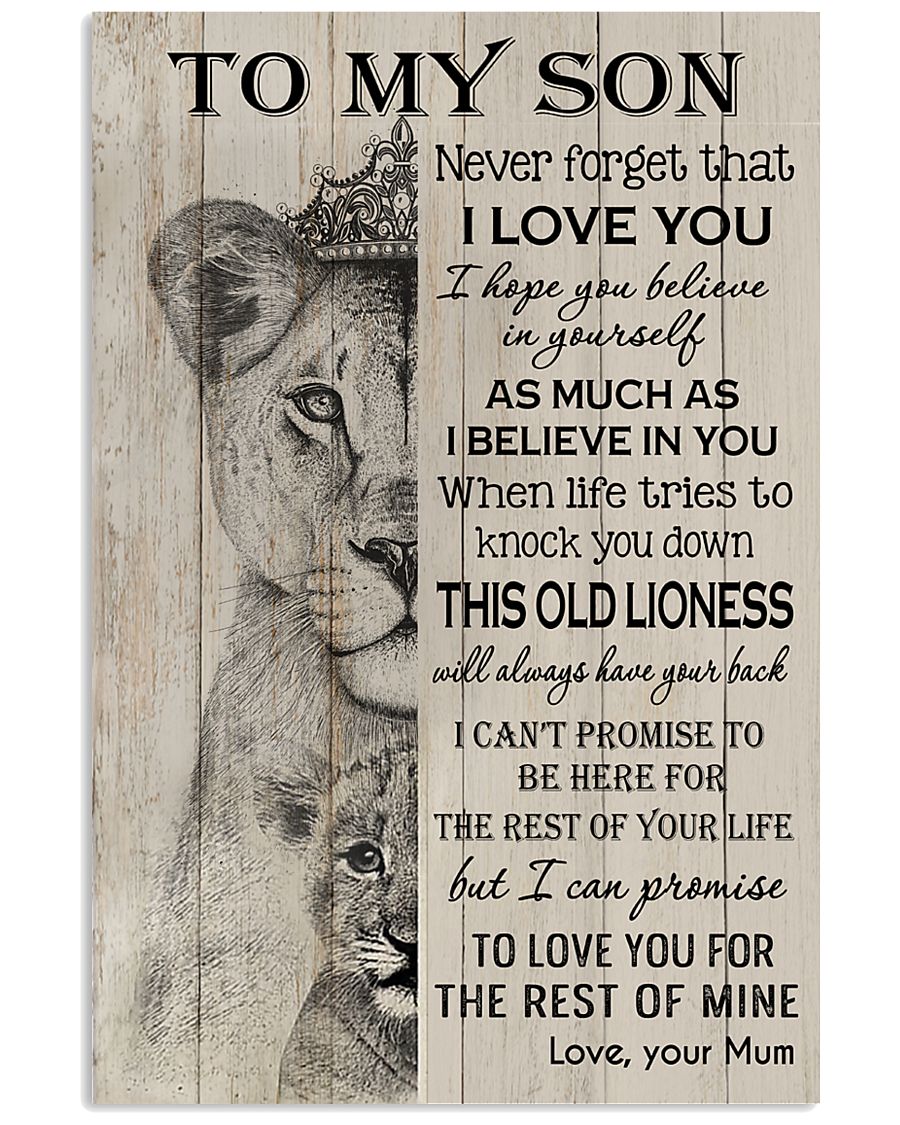 TO MY SON
Never forget that
I LOVE YOU
I hope you believe
in yourself
AS MUCH AS
I BELIEVE IN YOU
When life tries to
knock you down
THIS OLD LIONESS
will always have your back
I CAN'T PROMISE TO
BE HERE FOR
THE REST OF YOUR LIFE
but I can promise
TO LOVE YOU FOR
THE REST OF MINE
Love, your Mum